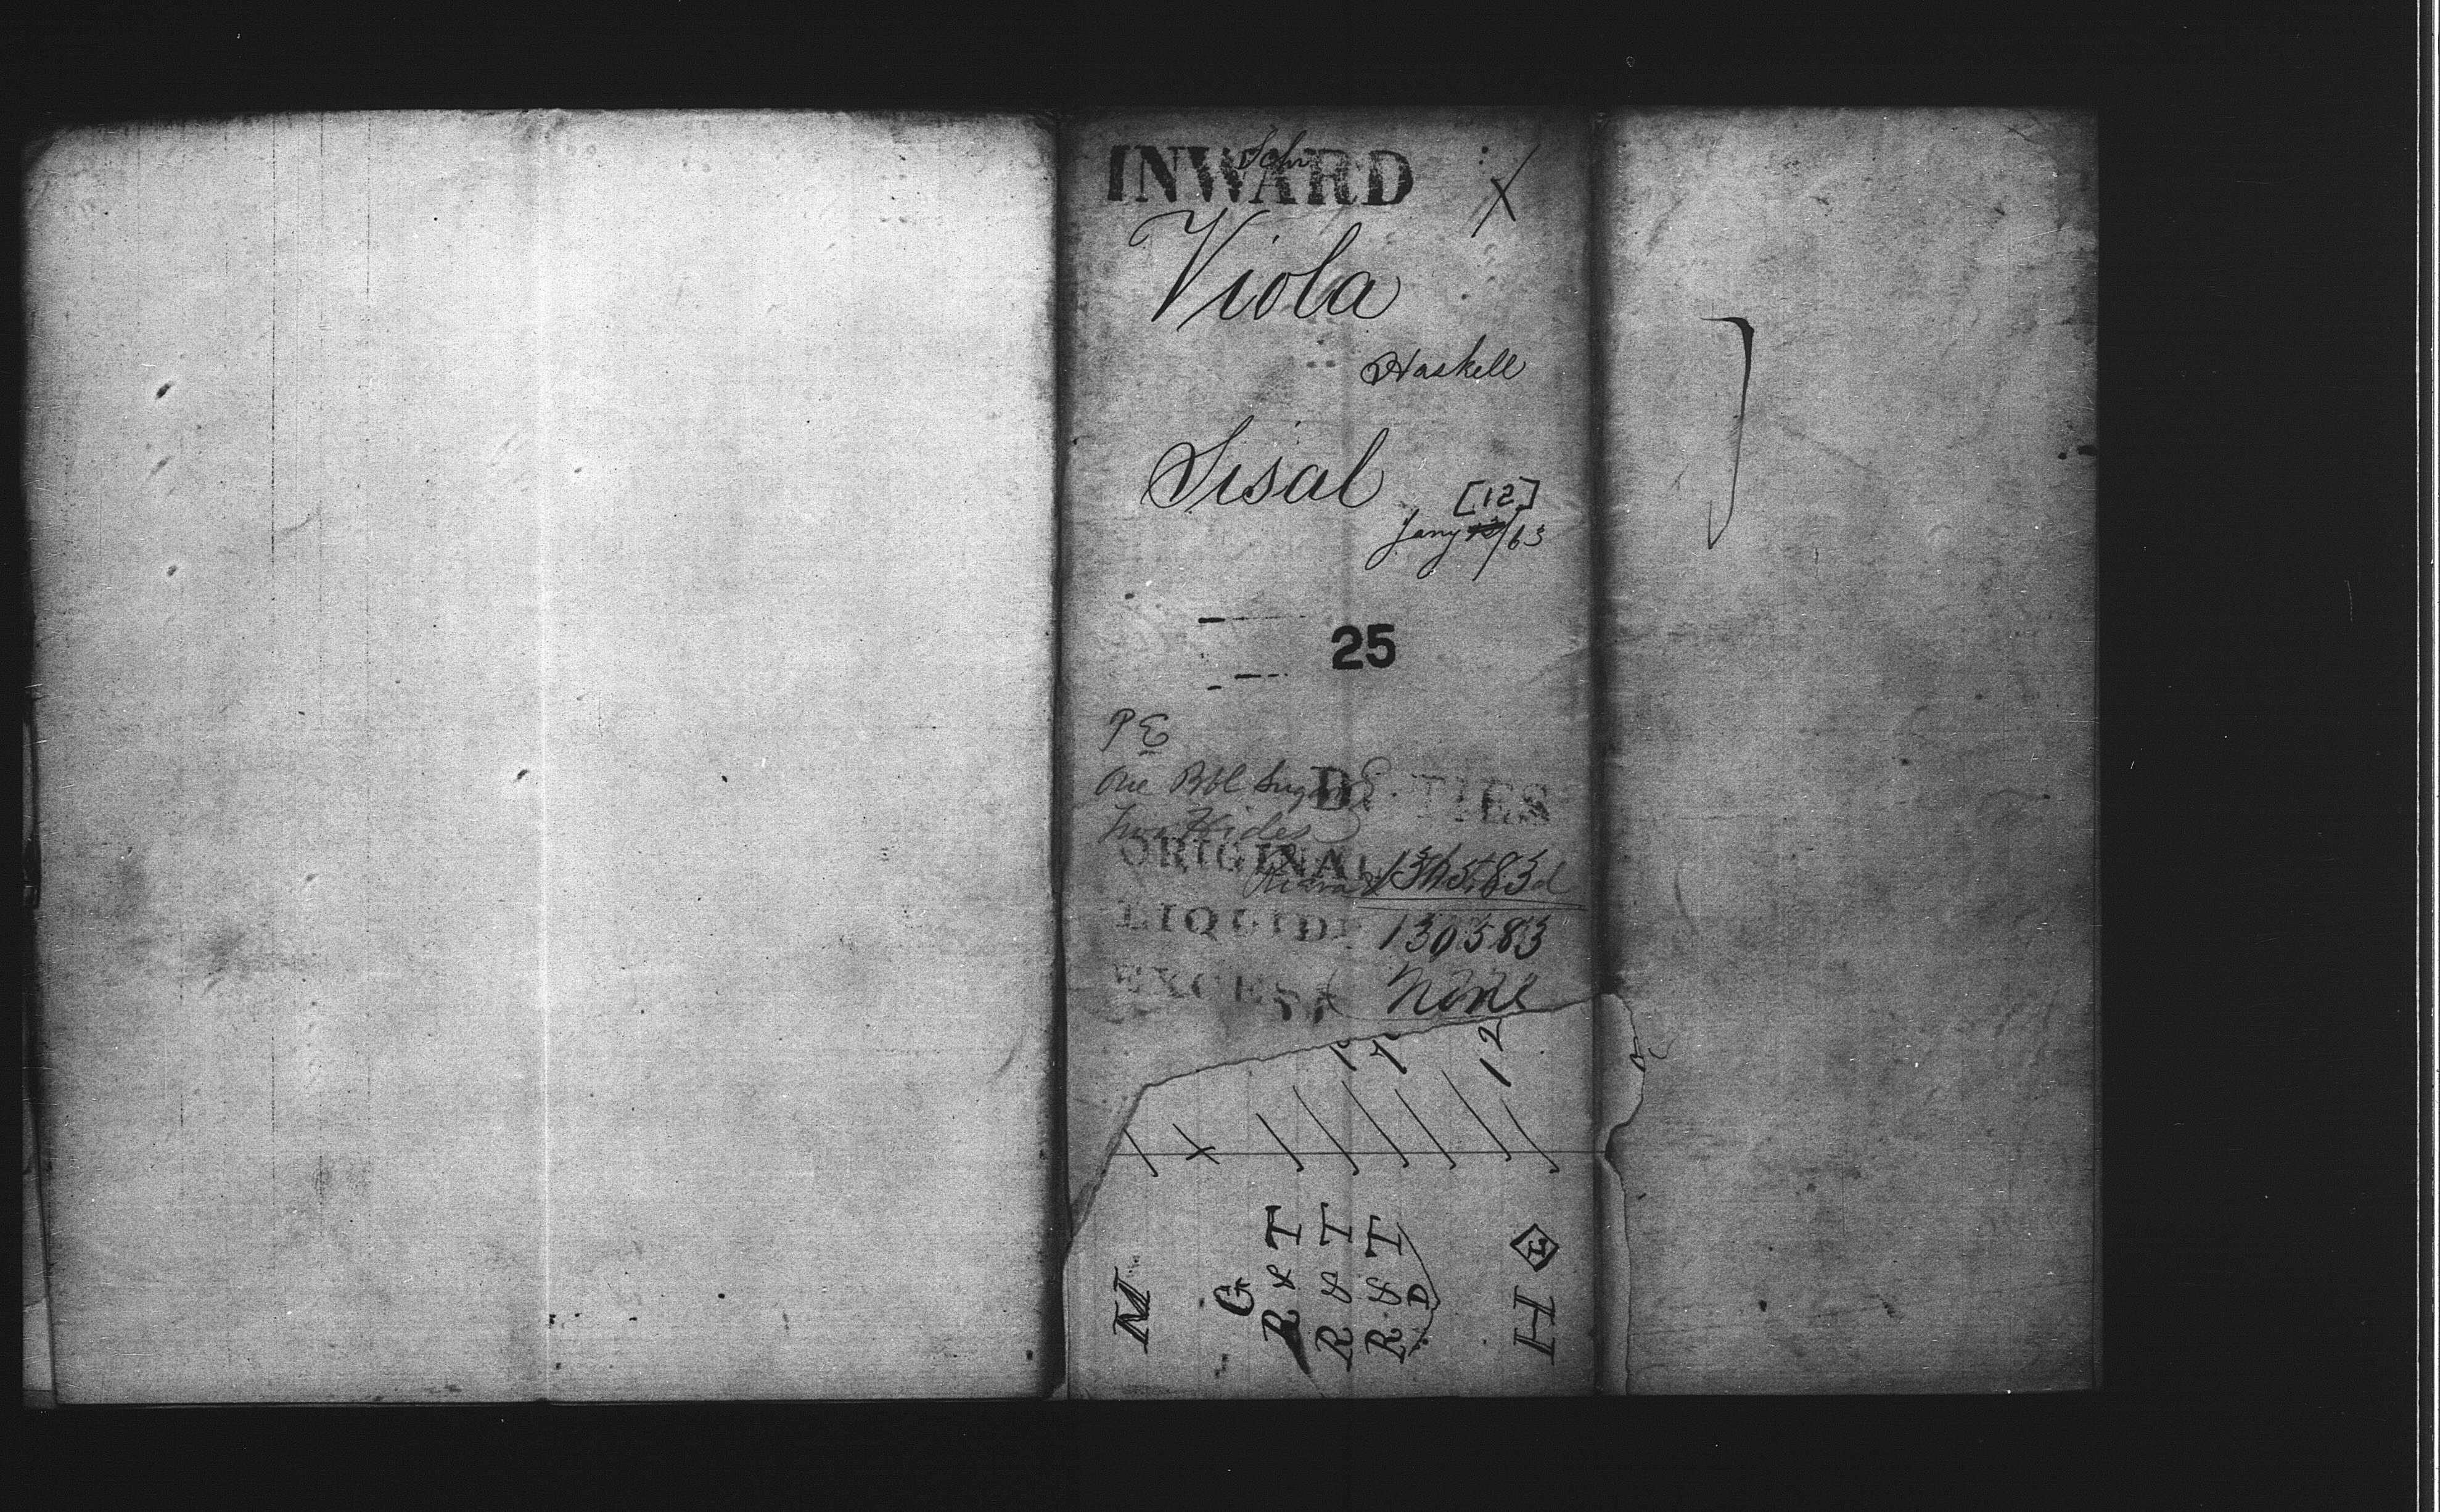 INWARD
Schr
X
Viola
Haskell
Sisal
[12]
Jany 12/63
25
P E
One Bbl Sugar
DUTIES
Two Hides
ORIGINAL 1305.83
LIQUIDA 1305 83
EXCESS None
12
M
G
R & T
R & T
R & T
D
H